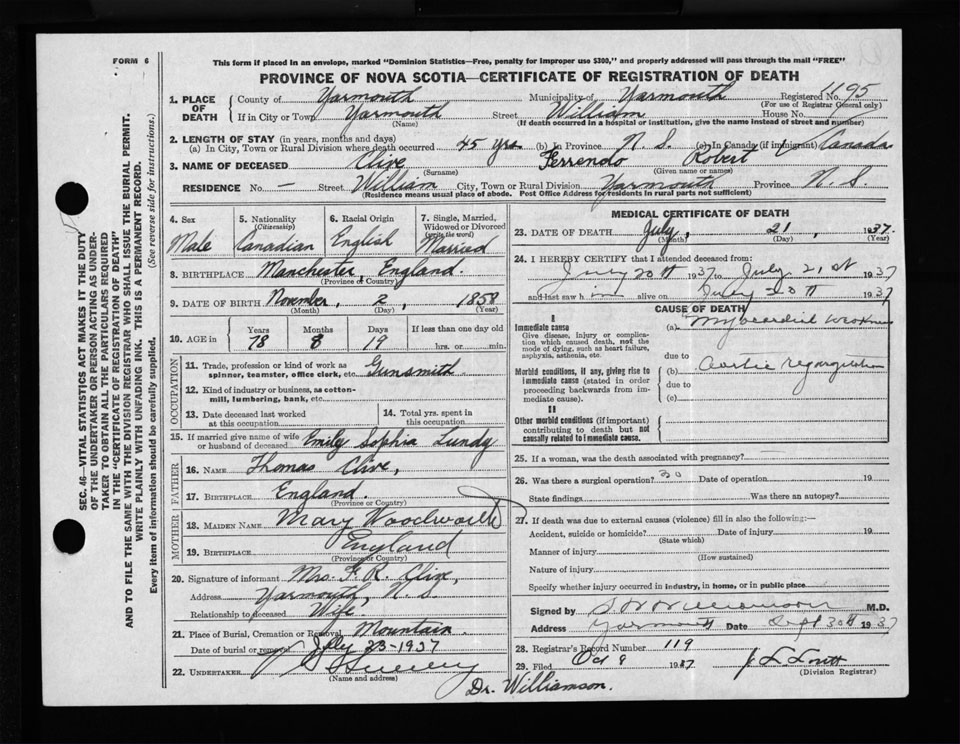 FORM 6
This form if placed in an envelope, marked "Dominion Statistics—Free, penalty for improper use $300," and properly addressed will pass through the mail "FREE"
PROVINCE OF NOVA SCOTIA—CERTIFICATE OF REGISTRATION OF DEATH
SEC. 46—VITAL STATISTICS ACT MAKES IT THE DUTY
OF THE UNDERTAKER OR PERSON ACTING AS UNDER-
TAKER TO OBTAIN ALL THE PARTICULARS REQUIRED
IN THE "CERTIFICATE OF REGISTRATION OF DEATH"
AND TO FILE THE SAME WITH THE DIVISION REGISTRAR WHO SHALL ISSUE THE BURIAL PERMIT.
WRITE PLAINLY WITH UNFADING INK. THIS IS A PERMANENT RECORD.
Every item of information should be carefully supplied. (See reverse side for instructions.)
1. PLACE OF DEATH County of Yarmouth Municipality of Yarmouth Registered No. 1195
(For use of Registrar General only)
If in City or Town Yarmouth Street William House No.
(Name) (If death occurred in a hospital or institution, give the name instead of street and number)
2. LENGTH OF STAY (in years, months and days)
(a) In City, Town or Rural Division where death occurred 45 yrs (b) In Province N. S. (c) In Canada (if immigrant) Canada
3. NAME OF DECEASED Clive Ferrendo Robert
(Surname) (Given name or names)
RESIDENCE No. — Street William City, Town or Rural Division Yarmouth Province N. S.
(Residence means usual place of abode. Post Office Address for residents in rural parts not sufficient)
4. Sex 5. Nationality (Citizenship) 6. Racial Origin 7. Single, Married, Widowed or Divorced (write the word)
Male Canadian English Married
8. BIRTHPLACE Manchester, England.
(Province or Country)
9. DATE OF BIRTH November, 2, 1858
(Month) (Day) (Year)
10. AGE in Years Months Days If less than one day old
78 8 19 hrs. or min.
OCCUPATION
11. Trade, profession or kind of work as
spinner, teamster, office clerk, etc. Gunsmith.
12. Kind of industry or business, as cotton-
mill, lumbering, bank, etc.
13. Date deceased last worked
at this occupation
14. Total yrs. spent in
this occupation
15. If married give name of wife
or husband of deceased Emily Sophia Lundy
FATHER
16. NAME Thomas Clive,
17. BIRTHPLACE England.
(Province or Country)
MOTHER
18. MAIDEN NAME Mary Woodworth
19. BIRTHPLACE England
(Province or Country)
20. Signature of informant Mrs. F. R. Clive,
Address Yarmouth, N. S.
Relationship to deceased Wife
21. Place of Burial, Cremation or Removal Mountain.
Date of burial or removal July 23-1937
22. UNDERTAKER
(Name and address)
MEDICAL CERTIFICATE OF DEATH
23. DATE OF DEATH July, 21, 1937.
(Month) (Day) (Year)
24. I HEREBY CERTIFY that I attended deceased from:
July 20th 1937 to July 21st 1937
and last saw him alive on July 20th 1937
CAUSE OF DEATH
I
Immediate cause
Give disease, injury or complica-
tion which caused death, not the
mode of dying, such as heart failure,
asphyxia, asthenia, etc.
(a)
due to
Morbid conditions, if any, giving rise to
immediate cause (stated in order
proceeding backwards from im-
mediate cause).
(b) Aortic regurgitation
due to
(c)
II
Other morbid conditions (if important)
contributing to death but not
causally related to immediate cause.
25. If a woman, was the death associated with pregnancy? —
26. Was there a surgical operation? Date of operation 19
State findings Was there an autopsy?
27. If death was due to external causes (violence) fill in also the following:—
Accident, suicide or homicide? Date of injury 19
(State which)
Manner of injury
(How sustained)
Nature of injury
Specify whether injury occurred in industry, in home, or in public place
Signed by M.D.
Address Yarmouth Date Sept 30th 1937
28. Registrar's Record Number 119
29. Filed Oct 9 1937
(Division Registrar)
Dr. Williamson.